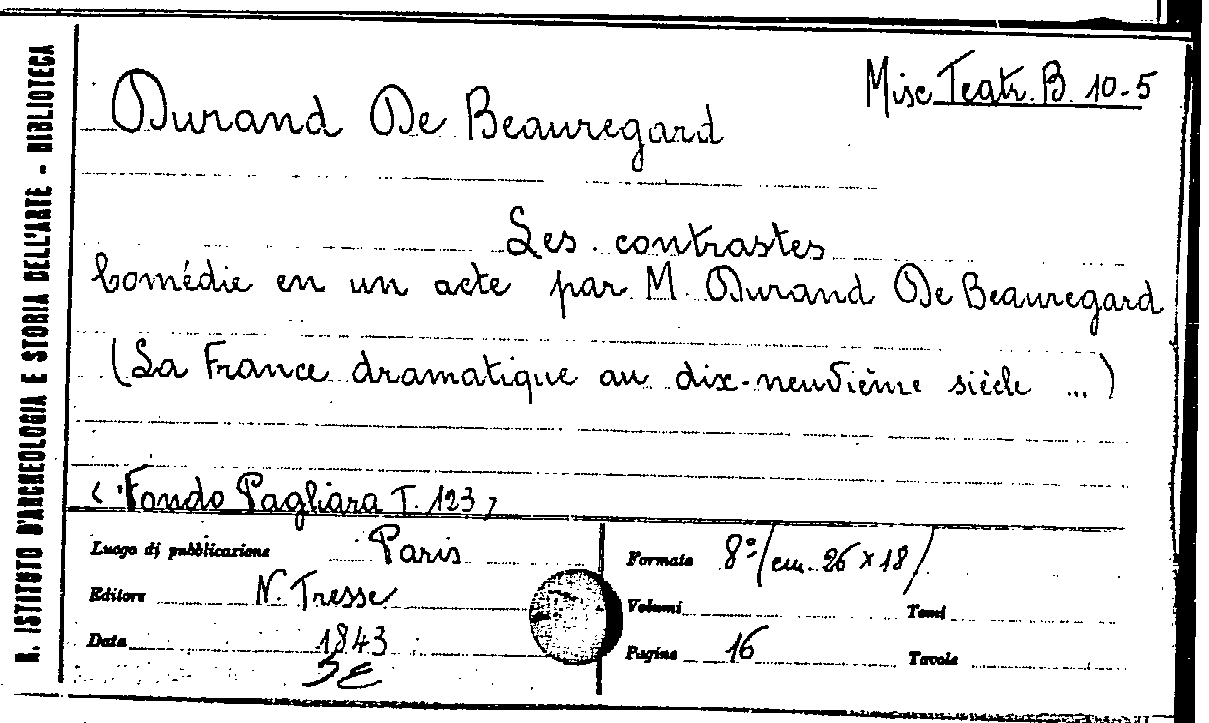 R. ISTITUTO D'ARCHEOLOGIA E STORIA DELL'ARTE - BIBLIOTECA
Misc Teatr. B. 10-5
Durand De Beauregard
Les contrastes
Comédie en un acte par M. Durand De Beauregard
(La France dramatique au dix-neuvième siècle ...)
< Fondo Pagliara T. 123 >
Luogo di pubblicazione Paris
Editore N. Tresse
Data 1843
Formato 8º (cm. 26 x 18)
Volumi Tomi
Pagine 16 Tavole